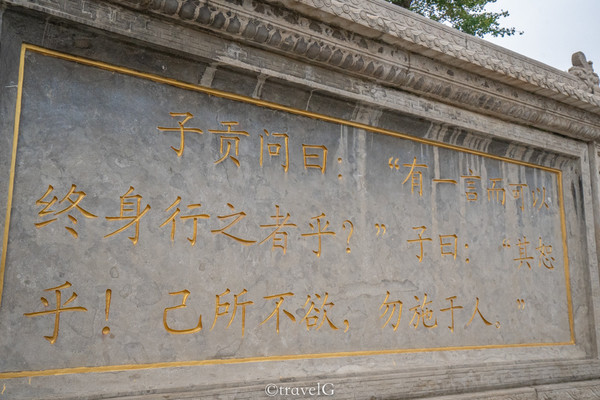 子贡问曰：“有一言而可以
终身行之者乎？”子曰：“其恕
乎！己所不欲，勿施于人。”
©travelG